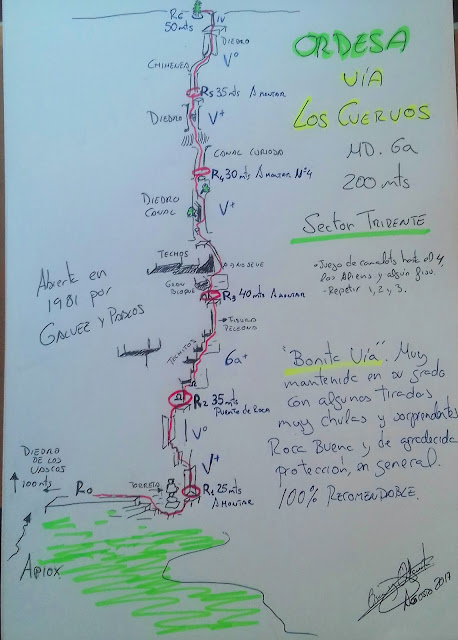 ORDESA
VÍA
LOS CUERVOS
MD. 6a
200 mts
Sector TRIDENTE
- Juego de camalots hasta el 4
los Aliens y algún fino.
- Repetir 1, 2, y 3.
"Bonita Vía". Muy
mantenida en su grado
con algunas tiradas
muy chulas y sorprendentes
Roca Buena y de agradecida
protección, en general.
100% RECOMENDABLE.
AGOSTO 2017
R6
50 mts
IV
DIEDRO
V°
CHIMENEA
R5 35 mts A MONTAR
DIEDRO
V+
CANAL CURIOSO
R4 30 mts A MONTAR Nº4
DIEDRO
CANAL
V+
TECHOS
GRAN
BLOQUE
R3 40 mts A MONTAR
Abierta en
1981 por
GALVEZ Y PABLOS
FISURA
TECHITOS
6a+
R2 35 mts
PUENTE DE ROCA
V°
V+
R1 25 mts
A MONTAR
DIEDRO
DE LOS
VASCOS
100 mts
R0
TORRETA
APROX